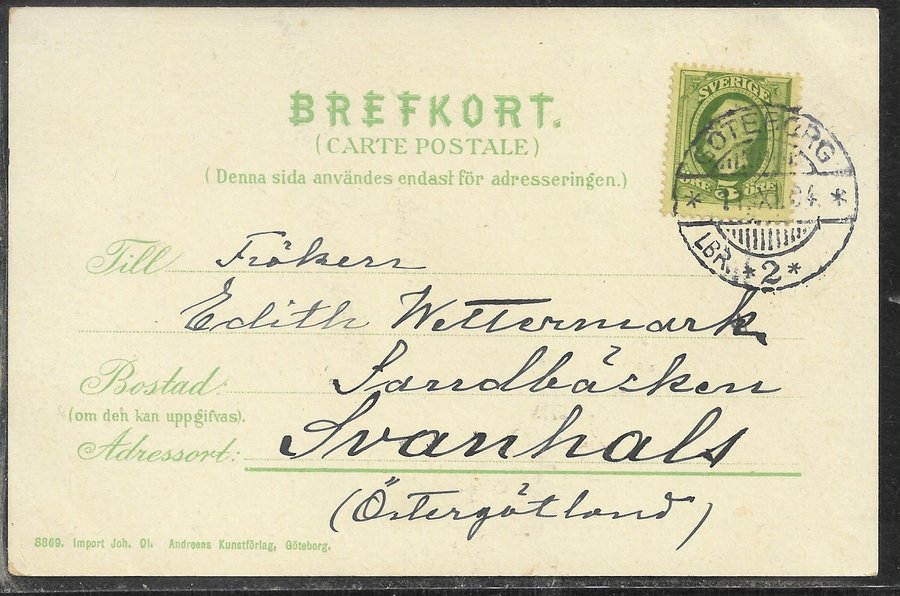 BREFKORT.
(CARTE POSTALE)
(Denna sida användes endast för adresseringen.)
SVERIGE
ÖRE 5 ÖRE
GÖTEBORG
LBR. * 2 *
Till Fröken
Edith Wettermark
Bostad: Sandbäcken
(om den kan uppgifvas).
Adressort: Svanhals
(Östergötland)
8869. Import Joh. Ol. Andreens Kunstförlag, Göteborg.